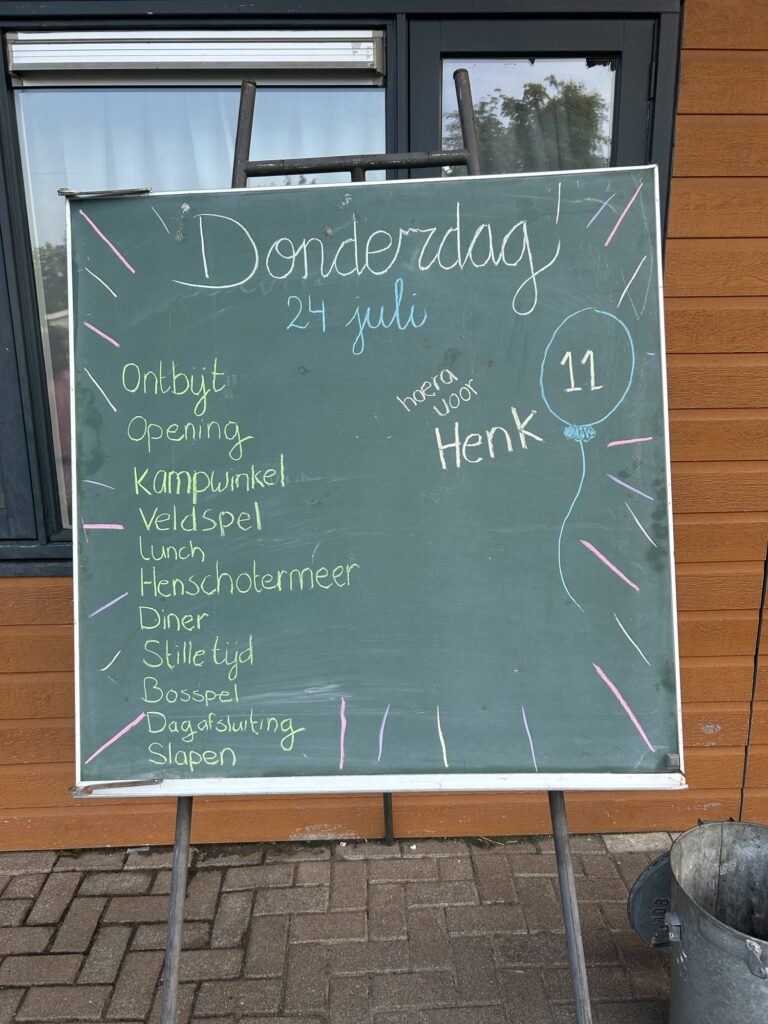 Donderdag
24 juli
hoera
voor
Henk
11
Ontbijt
Opening
Kampwinkel
Veldspel
Lunch
Henschotermeer
Diner
Stille tijd
Bosspel
Dagafsluiting
Slapen